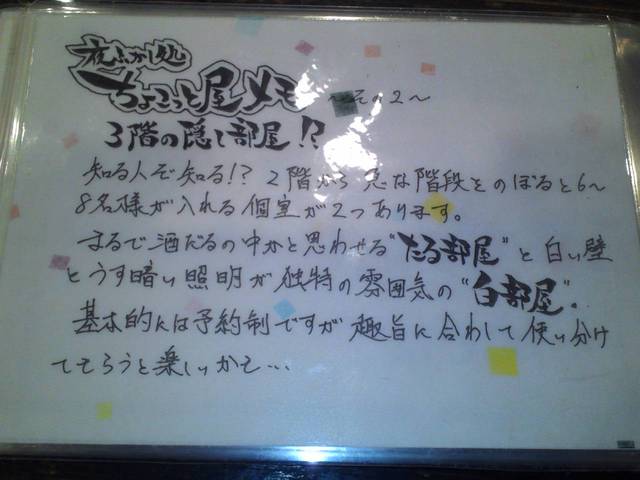 夜ふかし処
ちょこっと屋メモ ～その2～
3階の隠し部屋!?
知る人ぞ知る!? 2階から急な階段をのぼると6～
8名様が入れる個室が2つあります。
まるで酒だるの中かと思わせる“たる部屋”と白い壁
とうす暗い照明が独特の雰囲気の“白部屋”。
基本的には予約制ですが趣旨に合わして使い分け
てもろうと楽しいかも…